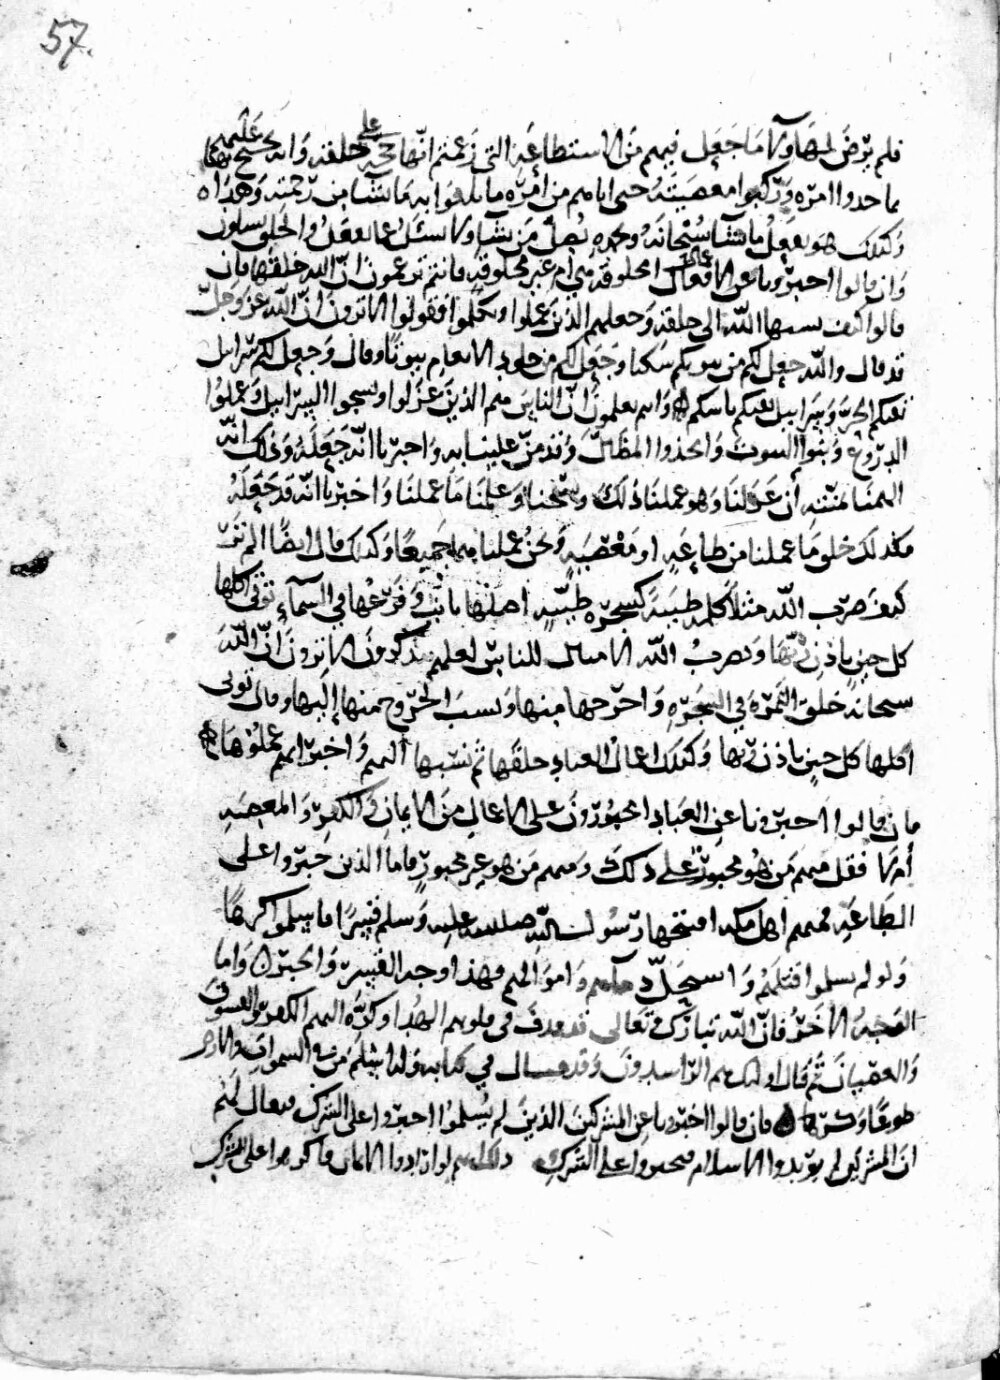 57.
فلم يرض لها ولا ما جعل فيهم من الاستطاعة التي زعمتم انها حجة على خلقه وانه يحتج بها عليهم
بما حدوا امره وركبوا معصيته حتى اباهم من امره ما بلغوا به ما شا من رحمته وهداه
وكذلك هو يفعل ما يشا سبحانه وبحمده يضل من يشا ولا يسئل عما يفعل والخلق يسلون
وان قالوا اخبرونا عن الافعال امخلوقة هي ام غير مخلوقة فانتم تزعمون ان الله خلقها فان
قالوا كيف نسبها الله الى خلقه وجعلهم الذين عملوا وتكلموا فقولوا الا ترون ان الله عز وجل
قد قال والله جعل لكم من بيوتكم سكنا وجعل لكم من جلود الانعام بيوتا وقال وجعل لكم سرابيل
تقيكم الحر وسرابيل تقيكم باسكم وانتم تعلمون ان الناس هم الذين غزلوا ونسجوا السرابيل وعملوا
الدروع وبنوا البيوت واتخذوا المظال وقد من علينا به واخبرنا انه جعله وذلك انه
الهمنا بمنته أن غزلنا وهو عملنا ذلك ونسجنا وعلمنا ما عملنا واخبرنا انه قد جعله
فكذلك خلق ما عملنا من طاعة او معصية ونحن عملناهما جميعا وكذلك قال ايضا الم تر
كيف ضرب الله مثلا كلمة طيبة كشجرة طيبة اصلها ثابت وفرعها في السماء تؤتي اكلها
كل حين باذن ربها ويضرب الله الامثال للناس لعلهم يتذكرون الا ترون ان الله
سبحانه خلق الثمرة في الشجرة واخرجها منها ونسب الخروج منها إليها وقال تؤتي
اكلها كل حين باذن ربها وكذلك اعمال العباد خلقها ثم نسبها اليهم واخبر انهم عملوها
فان قالوا اخبرونا عن العباد امجبورون على الاعمال من الايمان والكفر والمعصية
أم لا فقل منهم من هو مجبور على ذلك ومنهم من هو غير مجبور فاما الذين جبروا على
الطاعة فمنهم اهل مكة افتتحها رسول الله صلى الله عليه وسلم قسرا فاسلموا كرها
ولو لم يسلموا قتلهم واستحل دماهم واموالهم فهذا وجه القسر والجبر واما
الوجه الآخر فان الله تبارك وتعالى قذف في قلوبهم الهدا وكره اليهم الكفر والفسوق
والعصيان ثم قال اولئك هم الراشدون وقد قال في كتابه وله اسلم من في السموات والارض
طوعا وكرها فان قالوا اخبرونا عن المشركين الذين لم يسلموا اجبروا على الشرك فيقال لهم
ان المشركين لم يريدوا الاسلام فيجبروا على الشرك ذلك انهم لو ارادوا الايمان فاكرهوا على الشرك